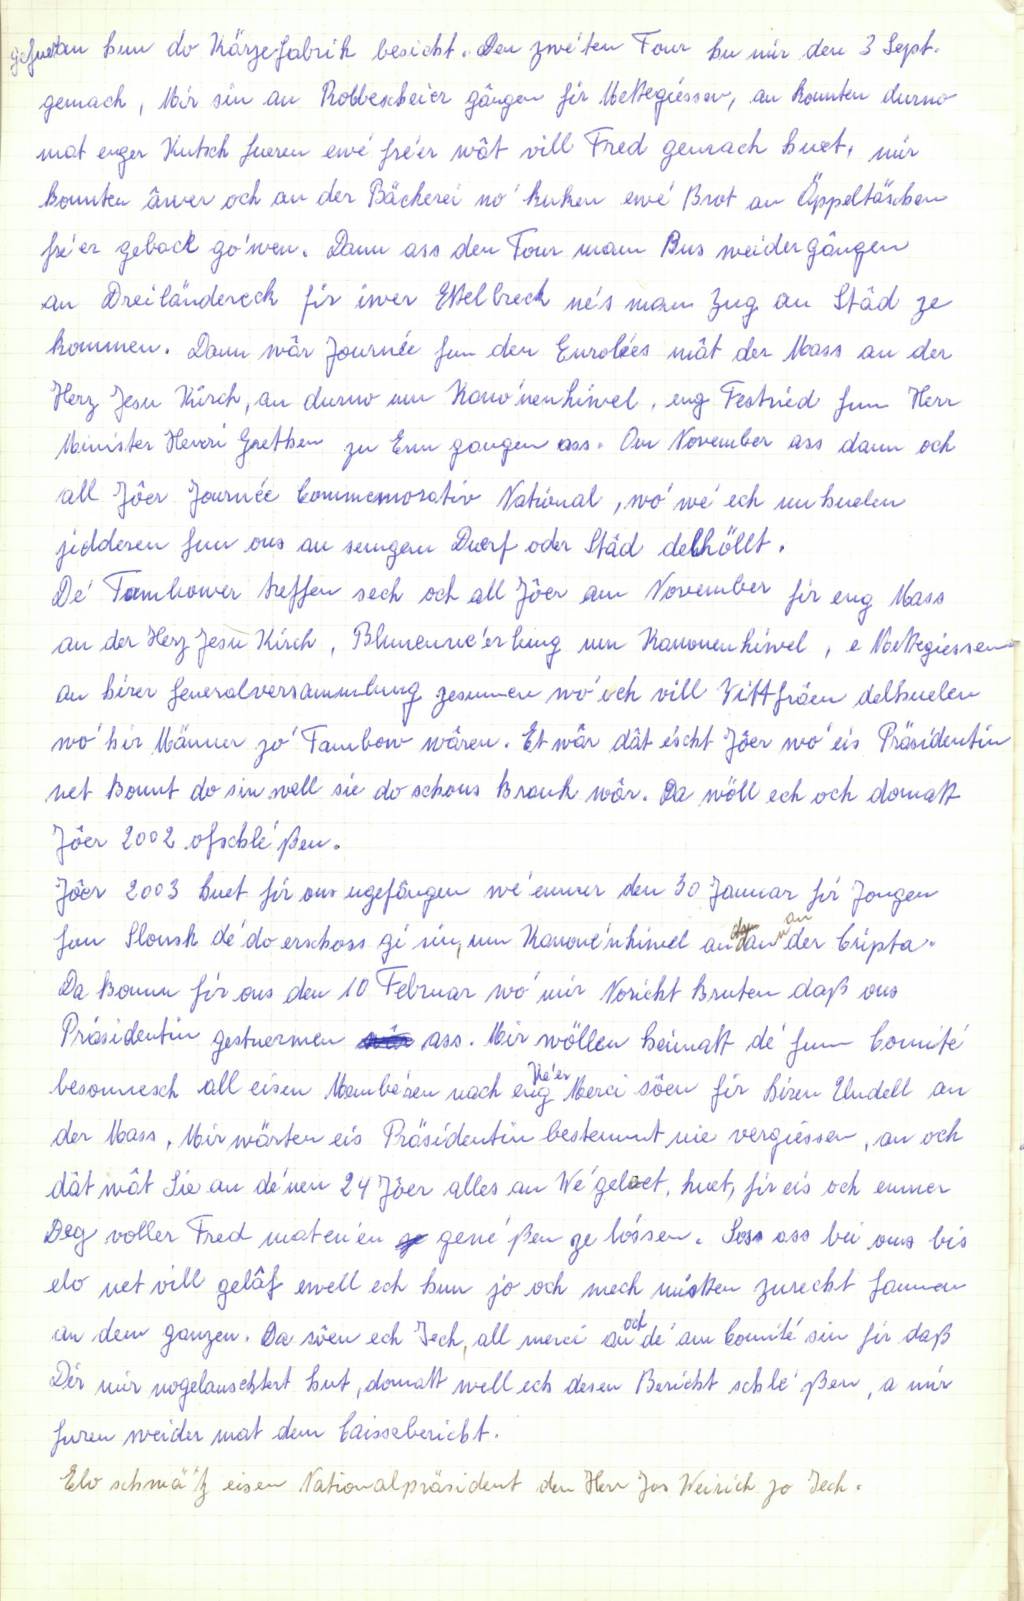 gefuer an hun do Kärzefabrik besicht. Den zwéten Tour hu mir den 3 Sept.
gemach, Mir sin an Robbescheier gângen fir Mëttegiessen, an konnten durno
mat enger Kutsch fueren ewé fréer wât vill Fred gemach huet, mir
konnten âwer och an der Bäckerei nó kuken ewé Brot an Äppeltäschen
fréer geback gówen. Dann ass den Tour mam Bus weidergângen
an Dreiländereck fir iwer Ettelbreck nés mam Zug an Stâd ze
kommen. Dann wâr Journée fun den Enrolées mât der Mass an der
Herz Jesu Kirch, an durno um Kanónenhiwel, eng Festried fum Herr
Minister Henri Grethen zu Enn gangen ass. Am November ass dann och
all Jôer Journée Commemorativ National, wó wé ech unhuelen
jidderen fun ons an sengem Duerf oder Stâd delhöllt.
Dé Tambower treffen sech och all Jôer am November fir eng Mass
an der Herz Jesu Kirch, Blumennieerlung um Kanonenhiwel, e Mëttegiessen
an hirer Generalversammlung zesummen wó och vill Wittfräen delhuelen
wó hir Männer zó Tambow wâren. Et wâr dât éischt Jôer wó eis Präsidentin
net konnt do sin well sie do schons krank wâr. Da wöll ech och domatt
Jôer 2002 ofschléßen.
Jôer 2003 huet fir ons ugefângen wé emmer den 30 Januar fir Jongen
fun Slonsk dé do erschoss gi sin, um Kanonénhiwel an an der Cripta.
Da koum fir ons den 10 Februar wó mir Noricht kruten daß ons
Präsidentin gestuerwen ass. Mir wöllen heimatt dé fum Comité
besonnesch all eisen Memberen nach eng Ké'er Merci sôen fir hiren Undell an
der Mass. Mir wärten eis Präsidentin bestemmt nie vergiessen, an och
dât wât Sie an dénen 24 Jôer alles an Wé geleet, huet, fir eis och emmer
Deg voller Fred matenén genéßen ze lóssen. Soss ass bei ons bis
elo net vill gelâf ewell ech hun jo och mech misten zurecht fannen
an dem ganzen. Da sôen ech Iech, all merci an och dé am Comité sin fir daß
Dir mir nogelauschtert hut, domatt well ech desen Bericht schléßen, a mir
furen weider mat dem Caissebericht.
Elo schwätz eisen Nationalpräsident den Herr Jos Weirich zo Iech.